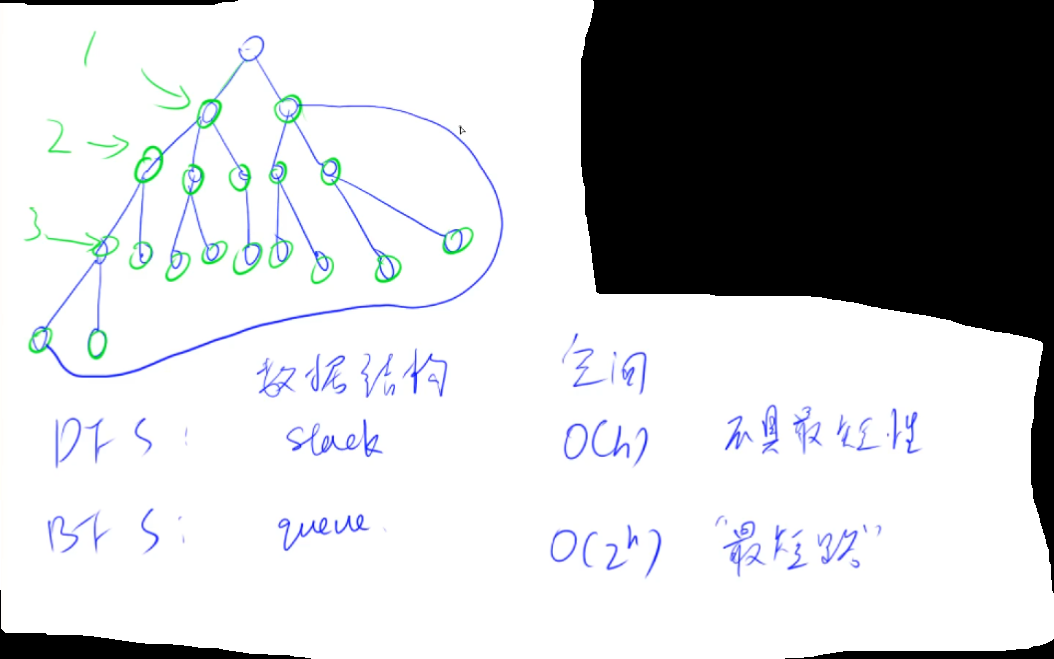 1
2
3
数据结构 空间
DFS: stack O(h) 不具最短性
BFS: queue. O(2^h) "最短路"